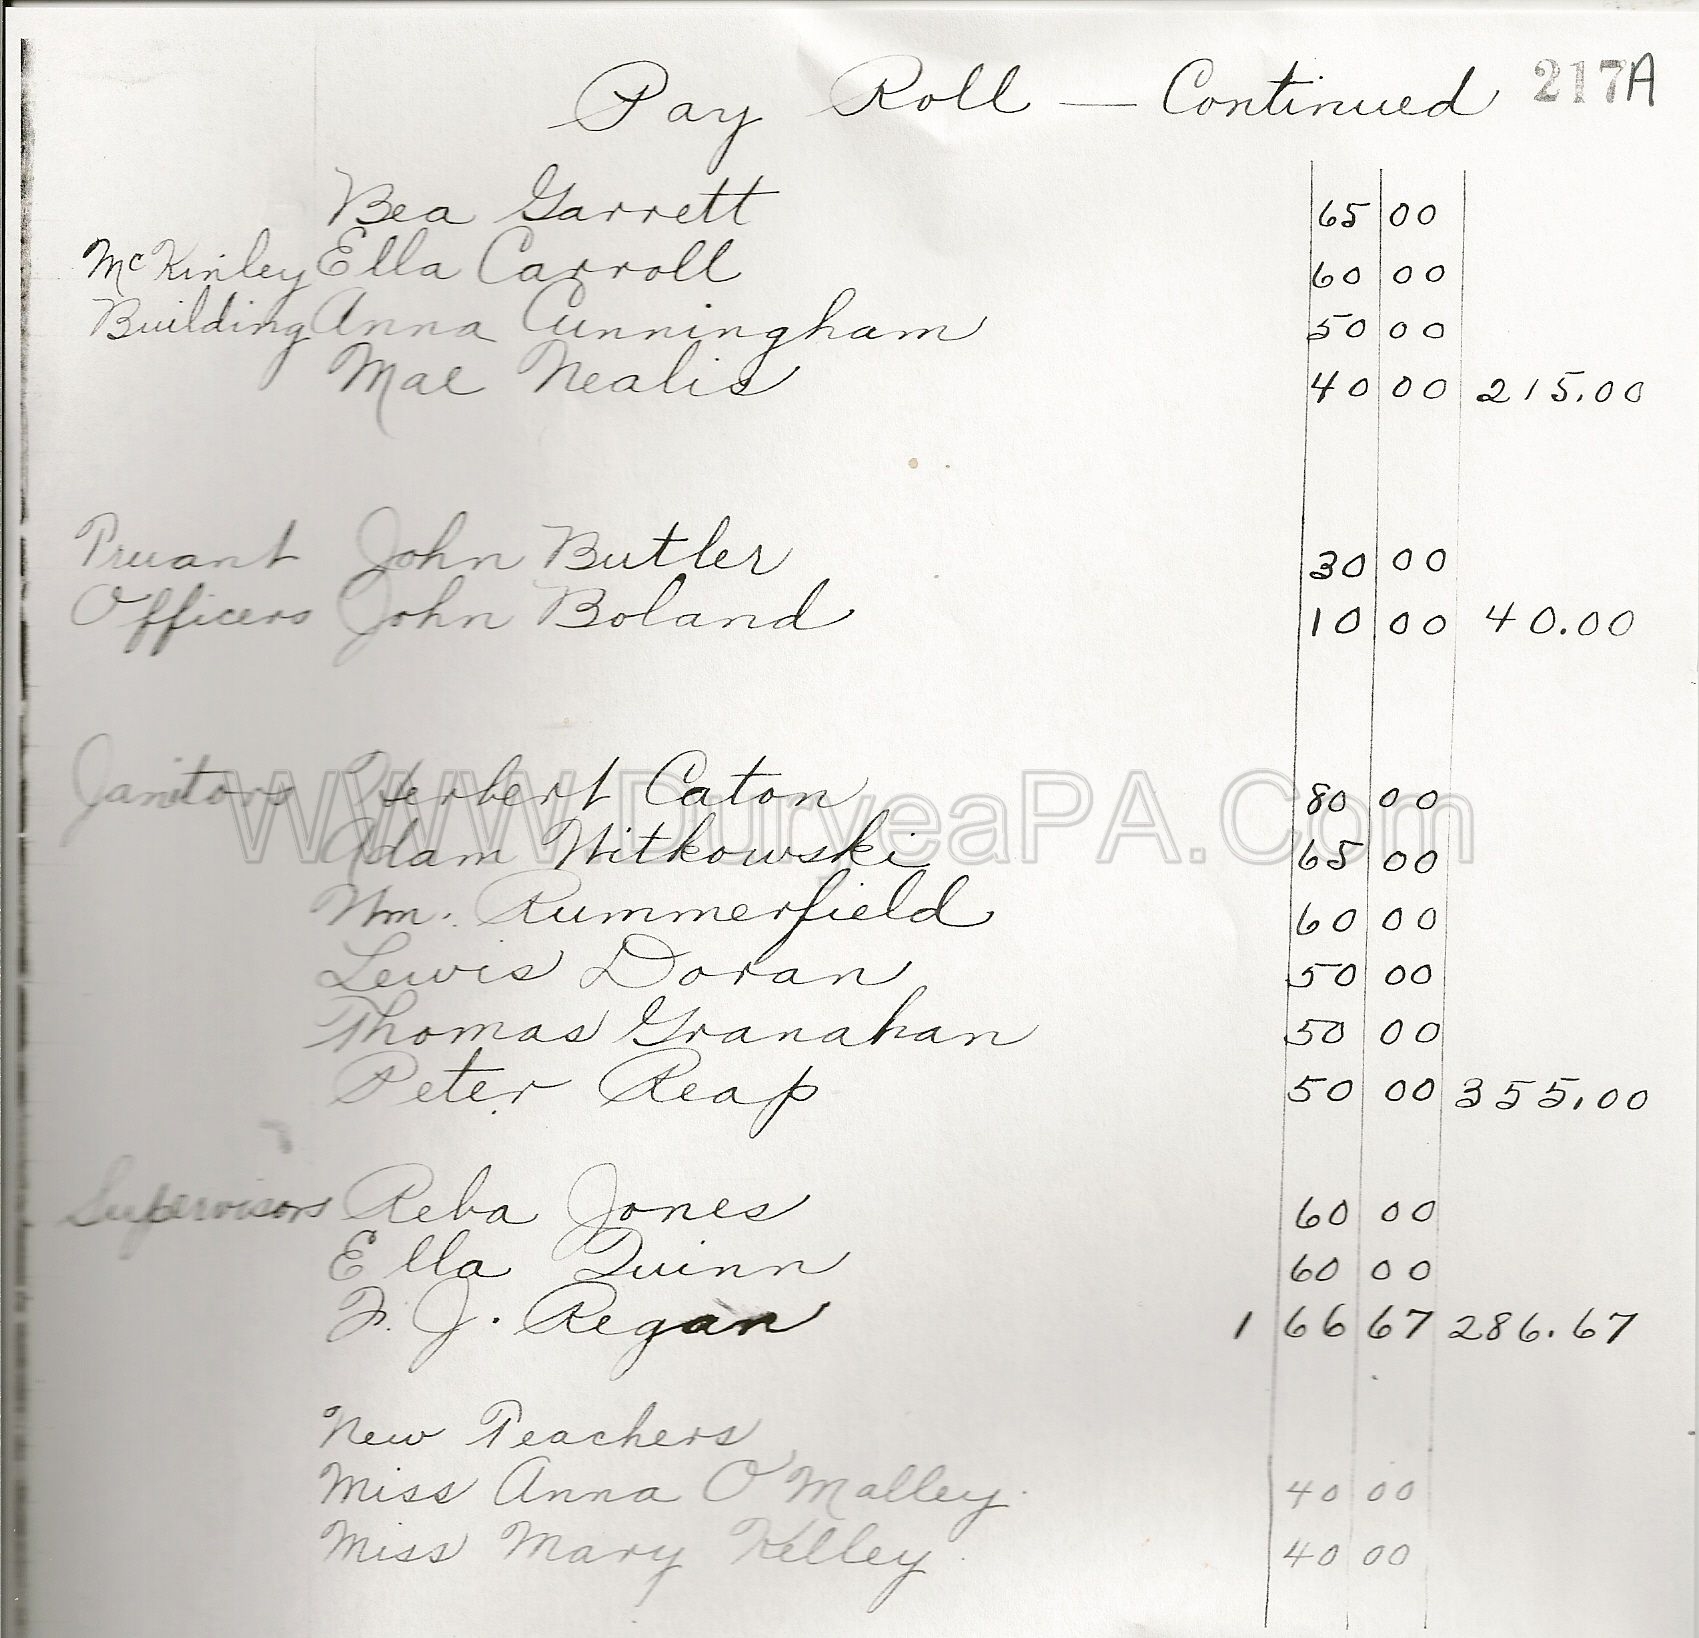 Pay Roll — Continued 217A
Bea Garrett 65 00
McKinley Ella Carroll 60 00
Building Anna Cunningham 50 00
Mae Nealis 40 00 215.00
Truant John Butler 30 00
Officers John Boland 10 00 40.00
Janitors Herbert Caton 80 00
www.DuryeaPA.Com
Adam Witkowski 65 00
Wm. Rummerfield 60 00
Lewis Doran 50 00
Thomas Granahan 50 00
Peter Reap 50 00 355.00
Supervisors Reba Jones 60 00
Ella Quinn 60 00
F. J. Regan 1 66 67 286.67
New Teachers
Miss Anna O'Malley. 40 00
Miss Mary Kelley. 40 00